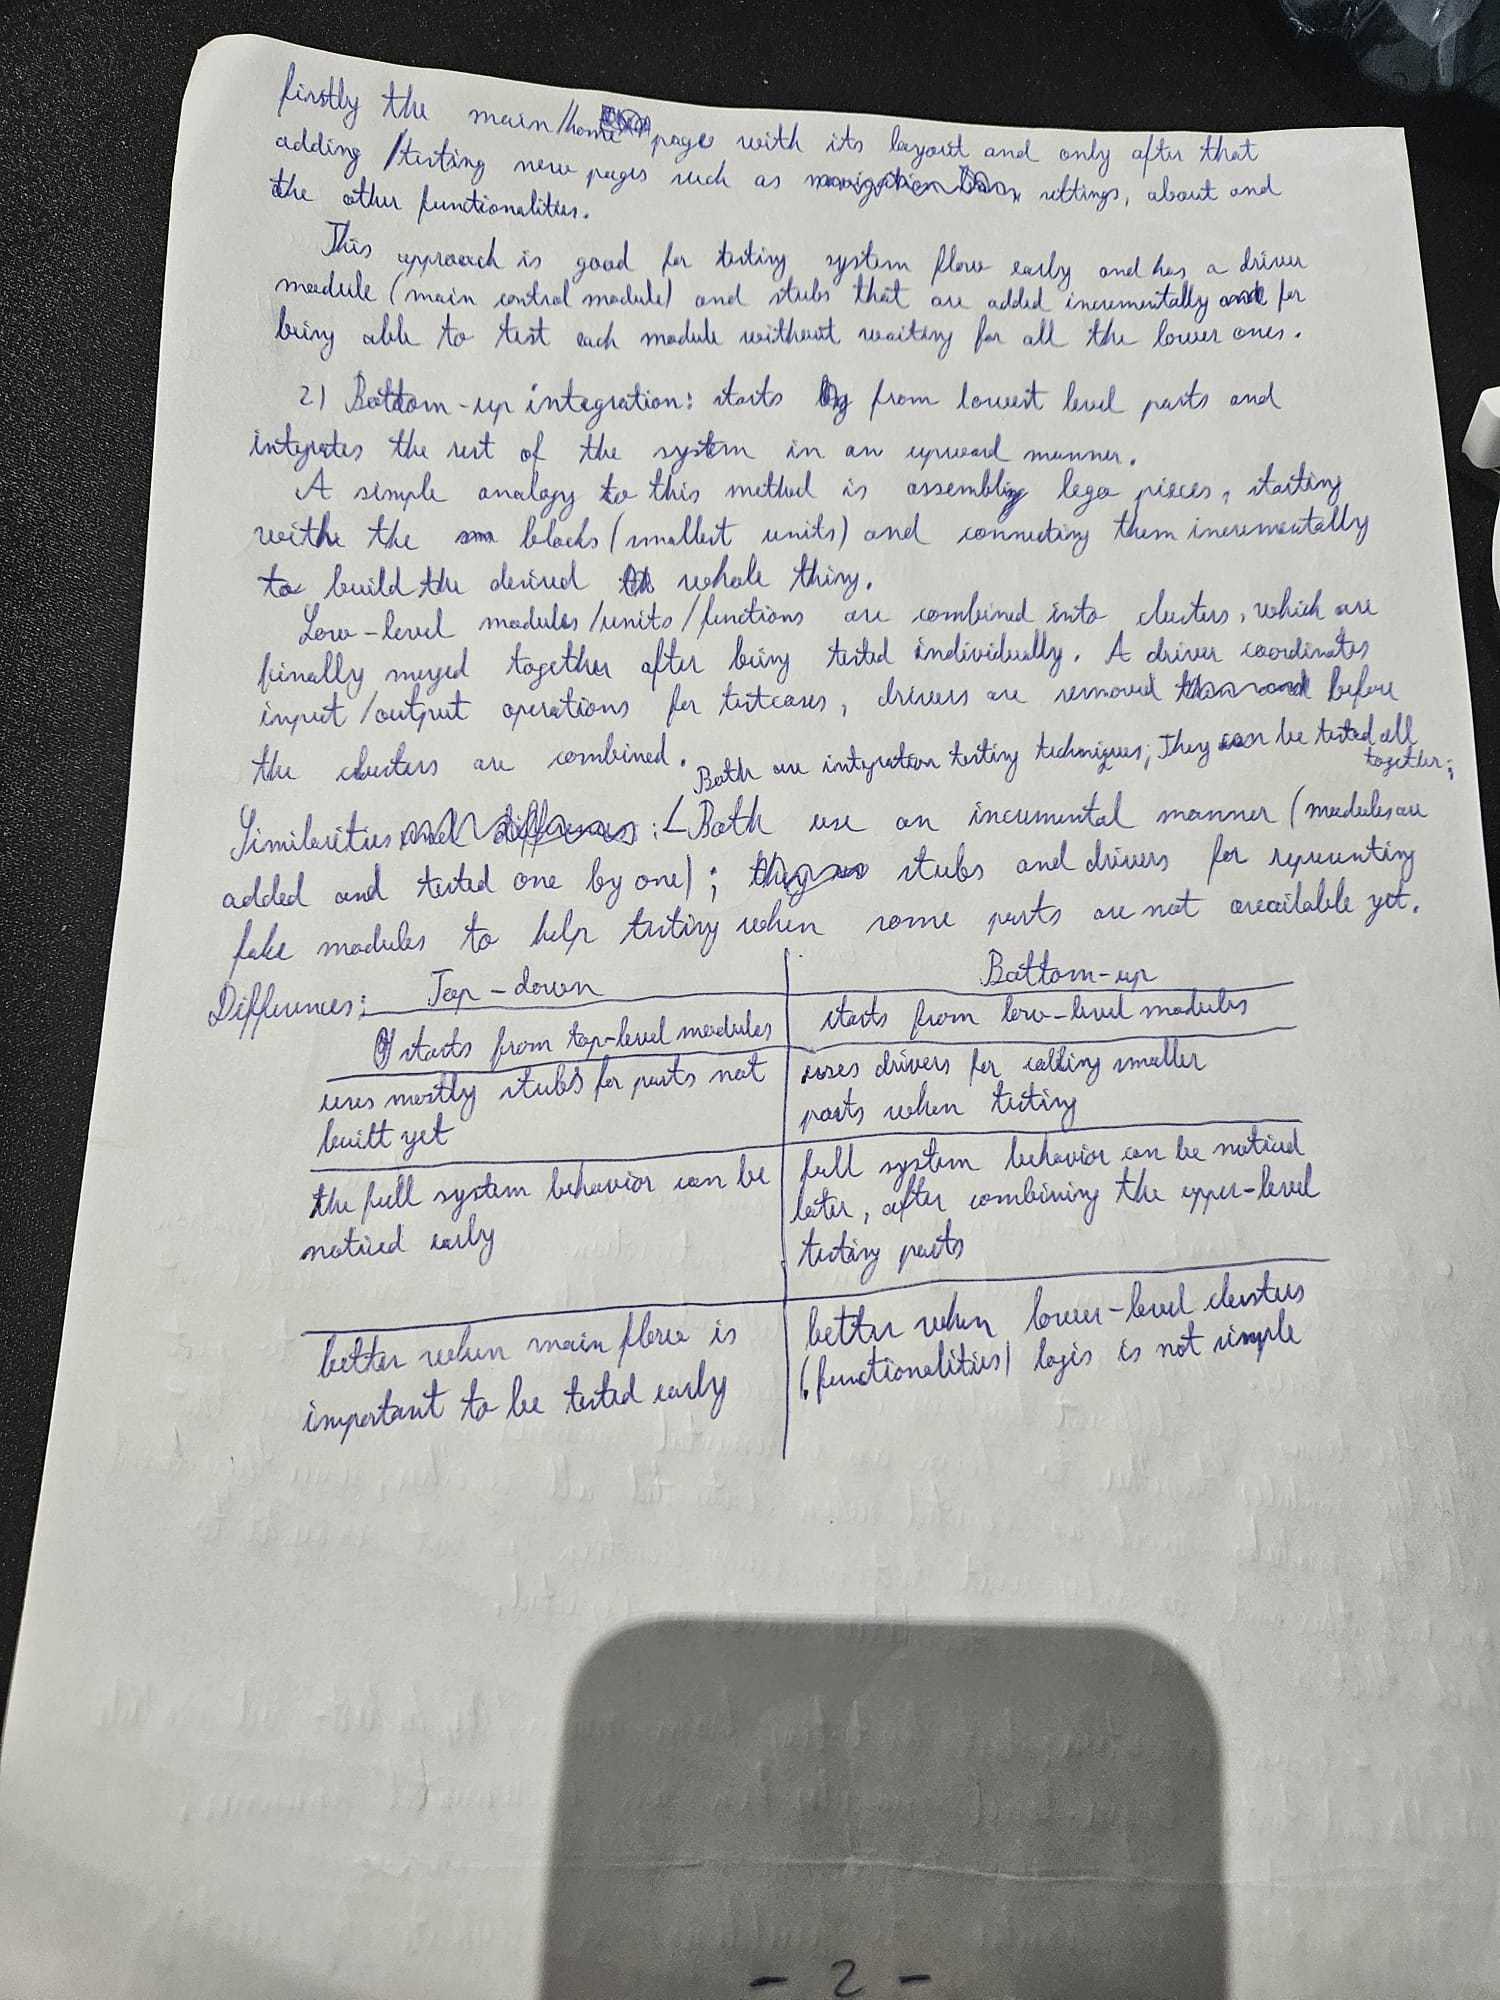 firstly the main/home page with its layout and only after that
adding/testing new pages such as settings, about and
the other functionalities.
This approach is good for testing system flow early and has a driver
module (main control module) and stubs that are added incrementally for
being able to test each module without waiting for all the lower ones.
2) Bottom-up integration: starts from lowest level parts and
integrates the rest of the system in an upward manner.
A simple analogy to this method is assembling lego pieces, starting
withe the blocks (smallest units) and connecting them incrementally
to build the desired whole thing.
Low-level modules/units/functions are combined into clusters, which are
finally merged together after being tested individually. A driver coordinates
input/output operations for testcases, drivers are removed before
the clusters are combined.
Both are integration testing techniques; They can be tested all
together;
Similarities: Both use an incremental manner (modules are
added and tested one by one); stubs and drivers for representing
fake modules to help testing when some parts are not available yet.
Differences: Top-down
Bottom-up
starts from top-level modules
starts from low-level modules
uses mostly stubs for parts not
built yet
uses drivers for calling smaller
parts when testing
the full system behavior can be
noticed early
full system behavior can be noticed
later, after combining the upper-level
testing parts
better when main flow is
important to be tested early
better when lower-level clusters
(functionalities) logic is not simple
- 2 -